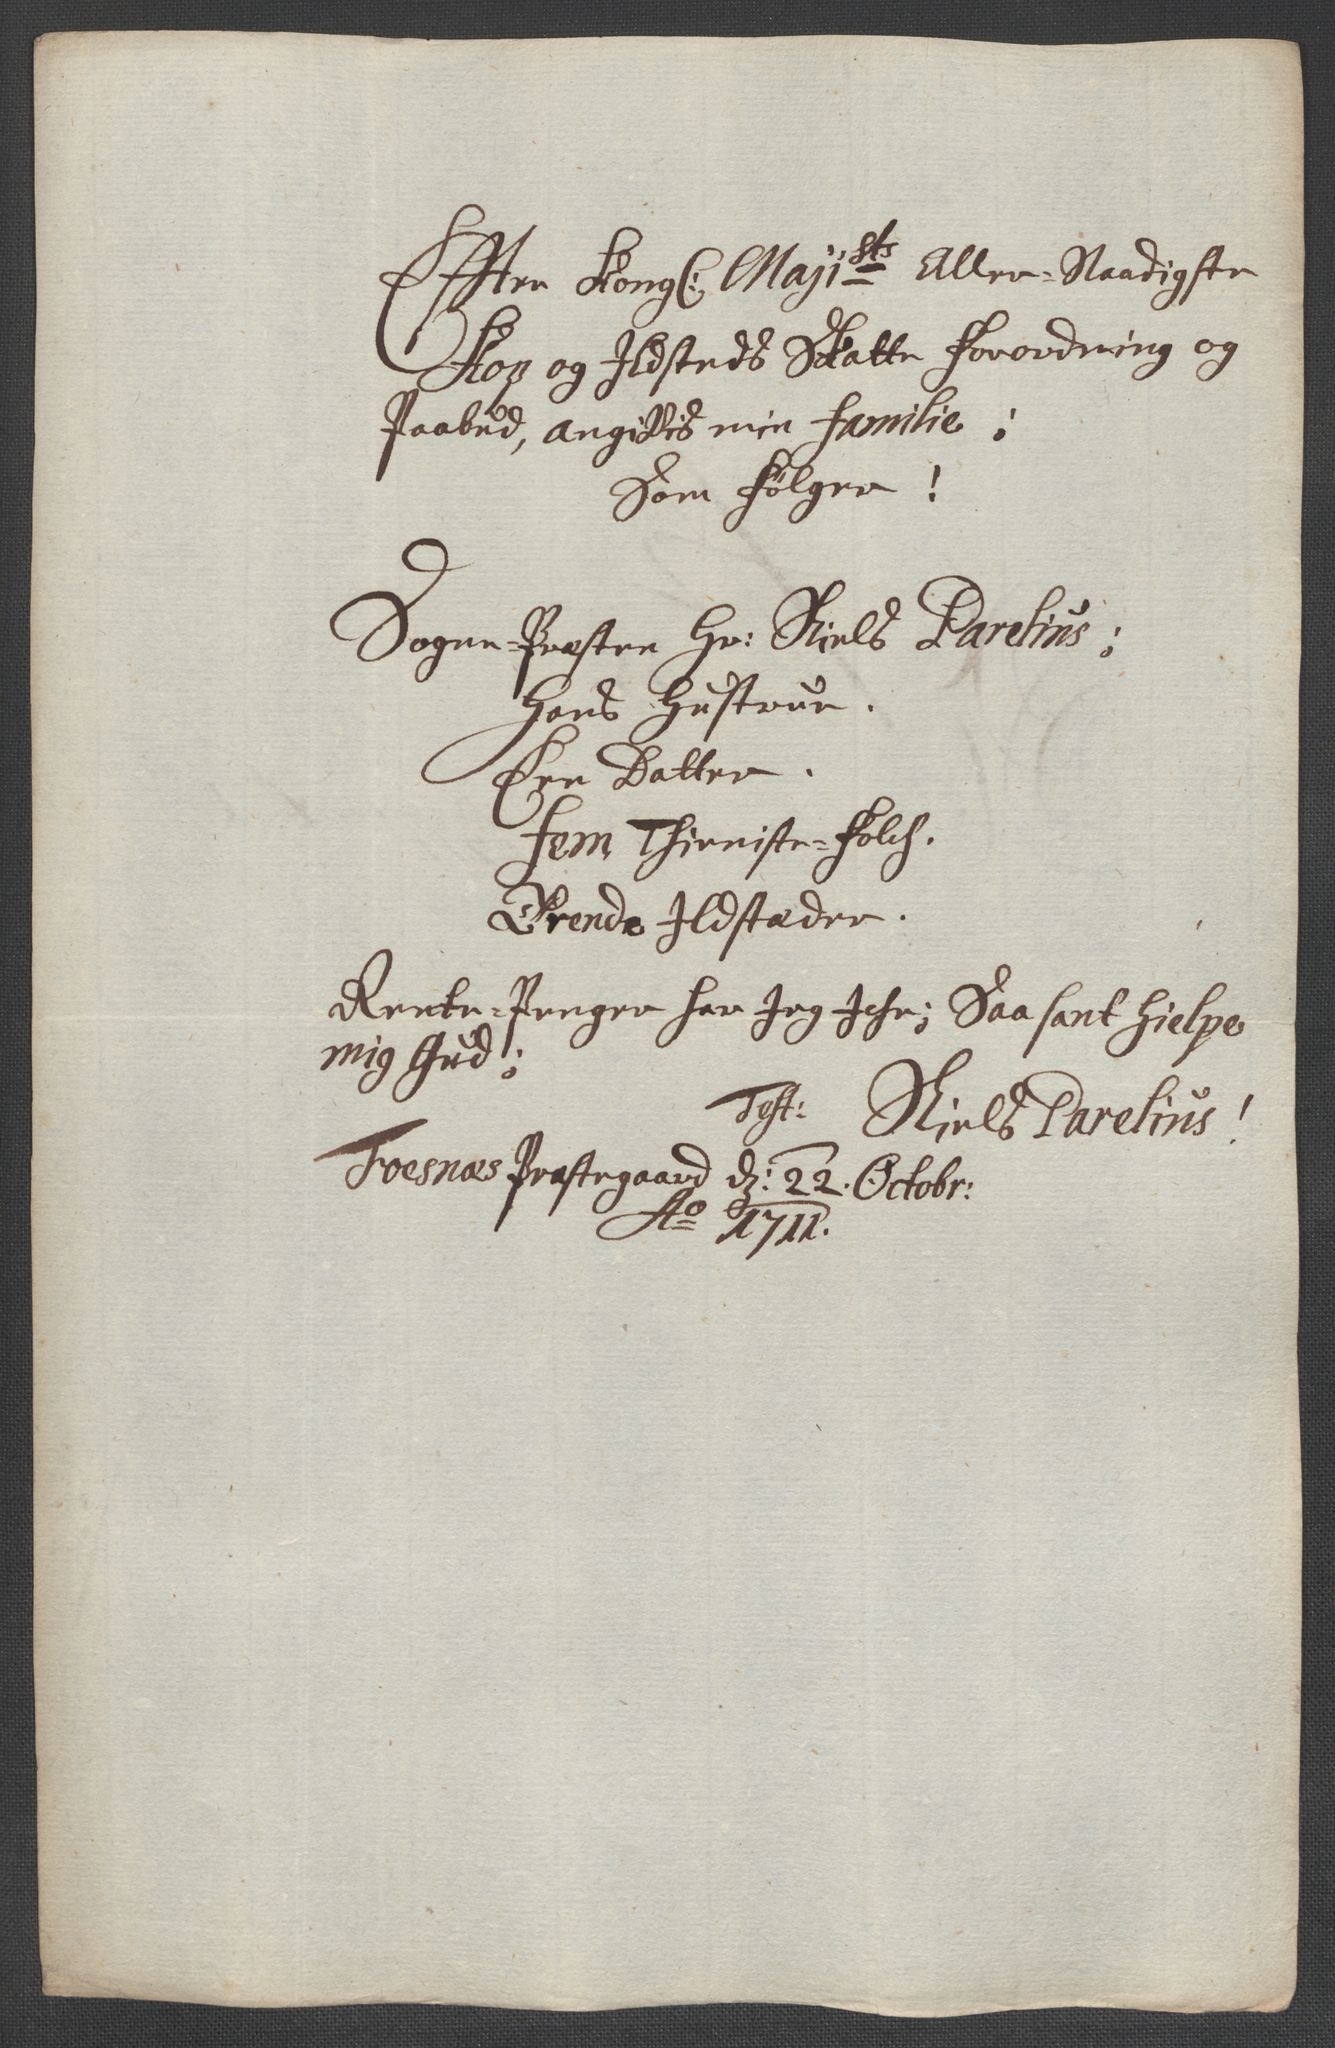 Effter Kongl: Maji<sup>sts</sup> Aller-Naadigste
Kop og Ildsteds Skatte Forordning og
Paabud, angifvis min familie;
Som følger!
Sogne-Præsten Hr: Niels Parelius;
Hans Hustrue.
Een Datter.
fem Thieniste-Folch.
Ildstæder.
Rente-Penger har Jeg Iche; Saa sant Hielpe
mig Gud;
Test: Niels Parelius!
Foesnæs Præstegaard d: 22. Octobr:
Ao 1711.